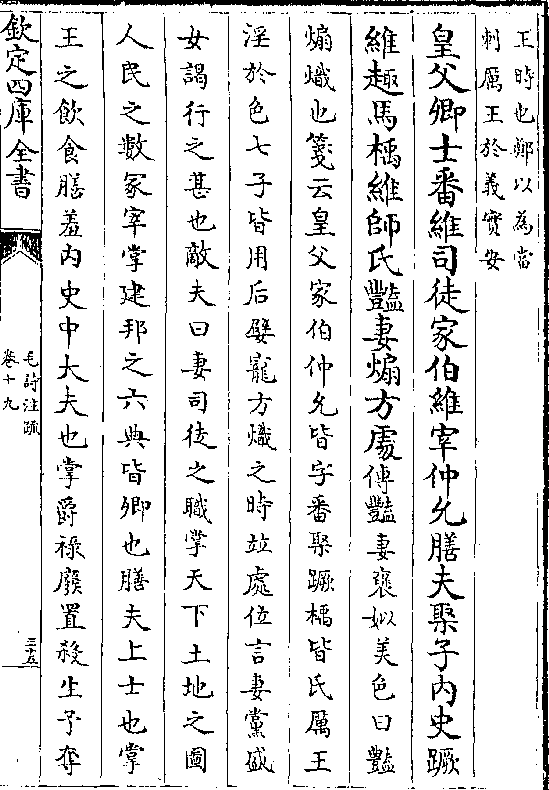 王時也鄭以為當
刺厲王於義實安
皇父卿士番維司徒家伯維宰仲允膳夫棸子内史蹶
維趣馬楀維師氏豔妻煽方處傳豔妻褒姒美色曰豔
煽熾也箋云皇父家伯仲允皆字番棸蹶楀皆氏厲王
淫於色七子皆用后嬖寵方熾之時並處位言妻黨盛
女謁行之甚也敵夫曰妻司徒之職掌天下土地之圖
人民之數冢宰掌建邦之六典皆卿也膳夫上士也掌
王之飲食膳羞内史中大夫也掌爵祿廢置殺生予奪
欽定四庫全書
毛詩注疏
卷十九
三十五